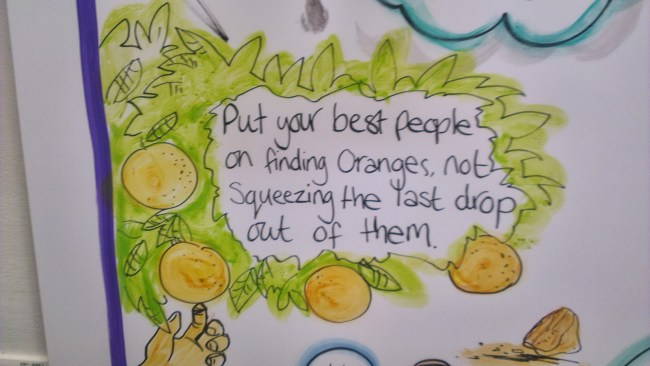 Put your best people
on finding Oranges, not
Squeezing the last drop
out of them.